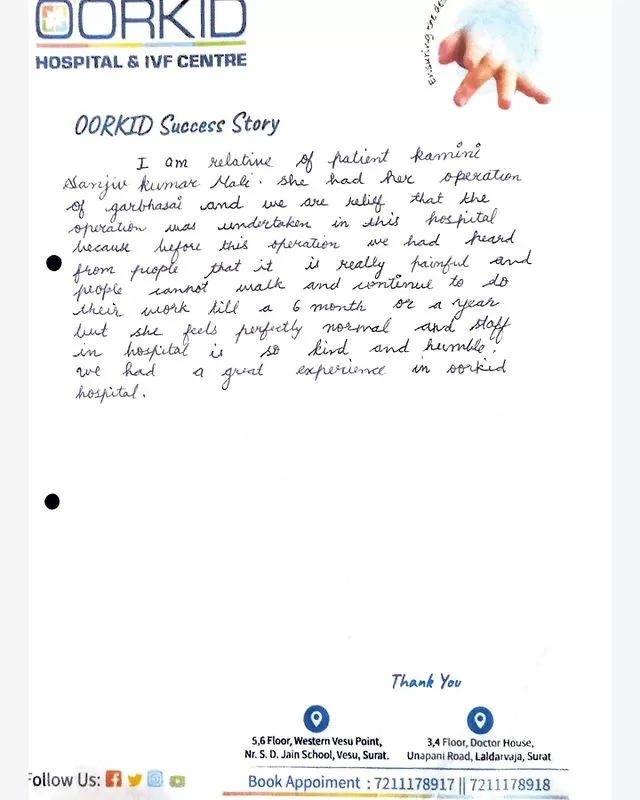 OORKID
HOSPITAL & IVF CENTRE
Ensuring the de
OORKID Success Story
I am relative of patient kamini
Sanjiv kumar Mali. She had her operation
of garbhasai and we are relief that the
operation was undertaken in this hospital
because before this operation we had heard
from people that it is really painful and
people cannot walk and continue to do
their work till a 6 month or a year
but she feels perfectly normal and staff
in hospital is so kind and humble.
we had a great experience in oorkid
hospital.
Thank You
5,6 Floor, Western Vesu Point,
Nr. S. D. Jain School, Vesu, Surat.
3,4 Floor, Doctor House,
Unapani Road, Laldarvaja, Surat
Follow Us:
Book Appoiment : 7211178917 || 7211178918